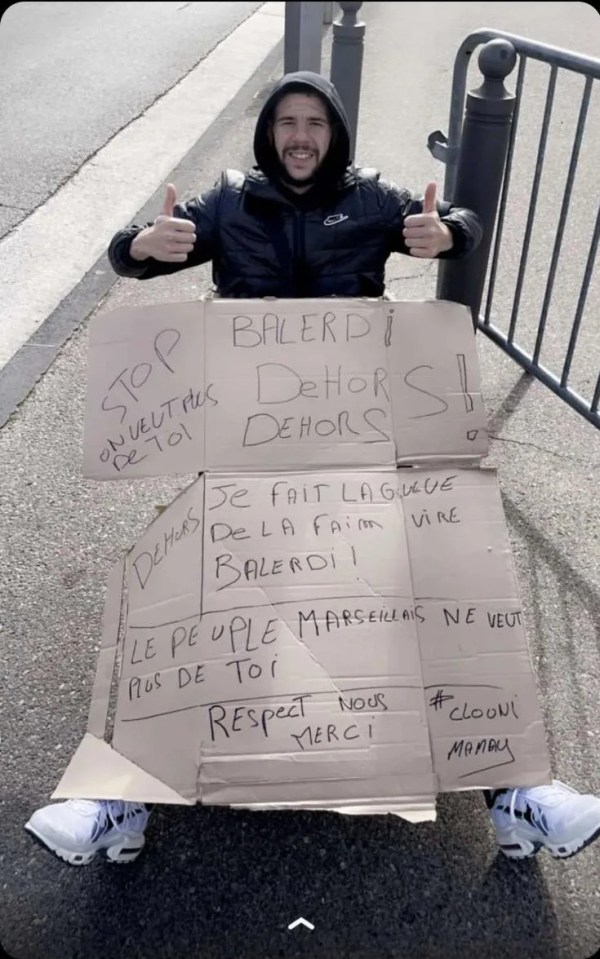 STOP
ON VEUT PLUS
DE TOI
BALERDi
DeHORS!
DEHORS
DEHORS
Je FAIT LA GUEUE
De LA FAim VIRE
BALERDi!
LE PEUPLE MARSEILLAIS NE VEUT
PLUS DE TOi
RESpecT NOUS
MERCi
#CLOONi
MAMAY